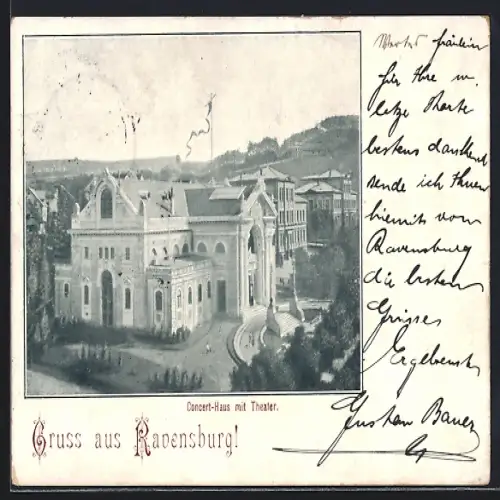 Wertes Fräulein
für Ihre w.
letzte Karte
bestens dankend
sende ich Ihnen
hiermit vom
Ravensburg
die besten
Grüsse
Ergebenst
Gustav Bauer
Concert-Haus mit Theater.
Gruss aus Ravensburg!